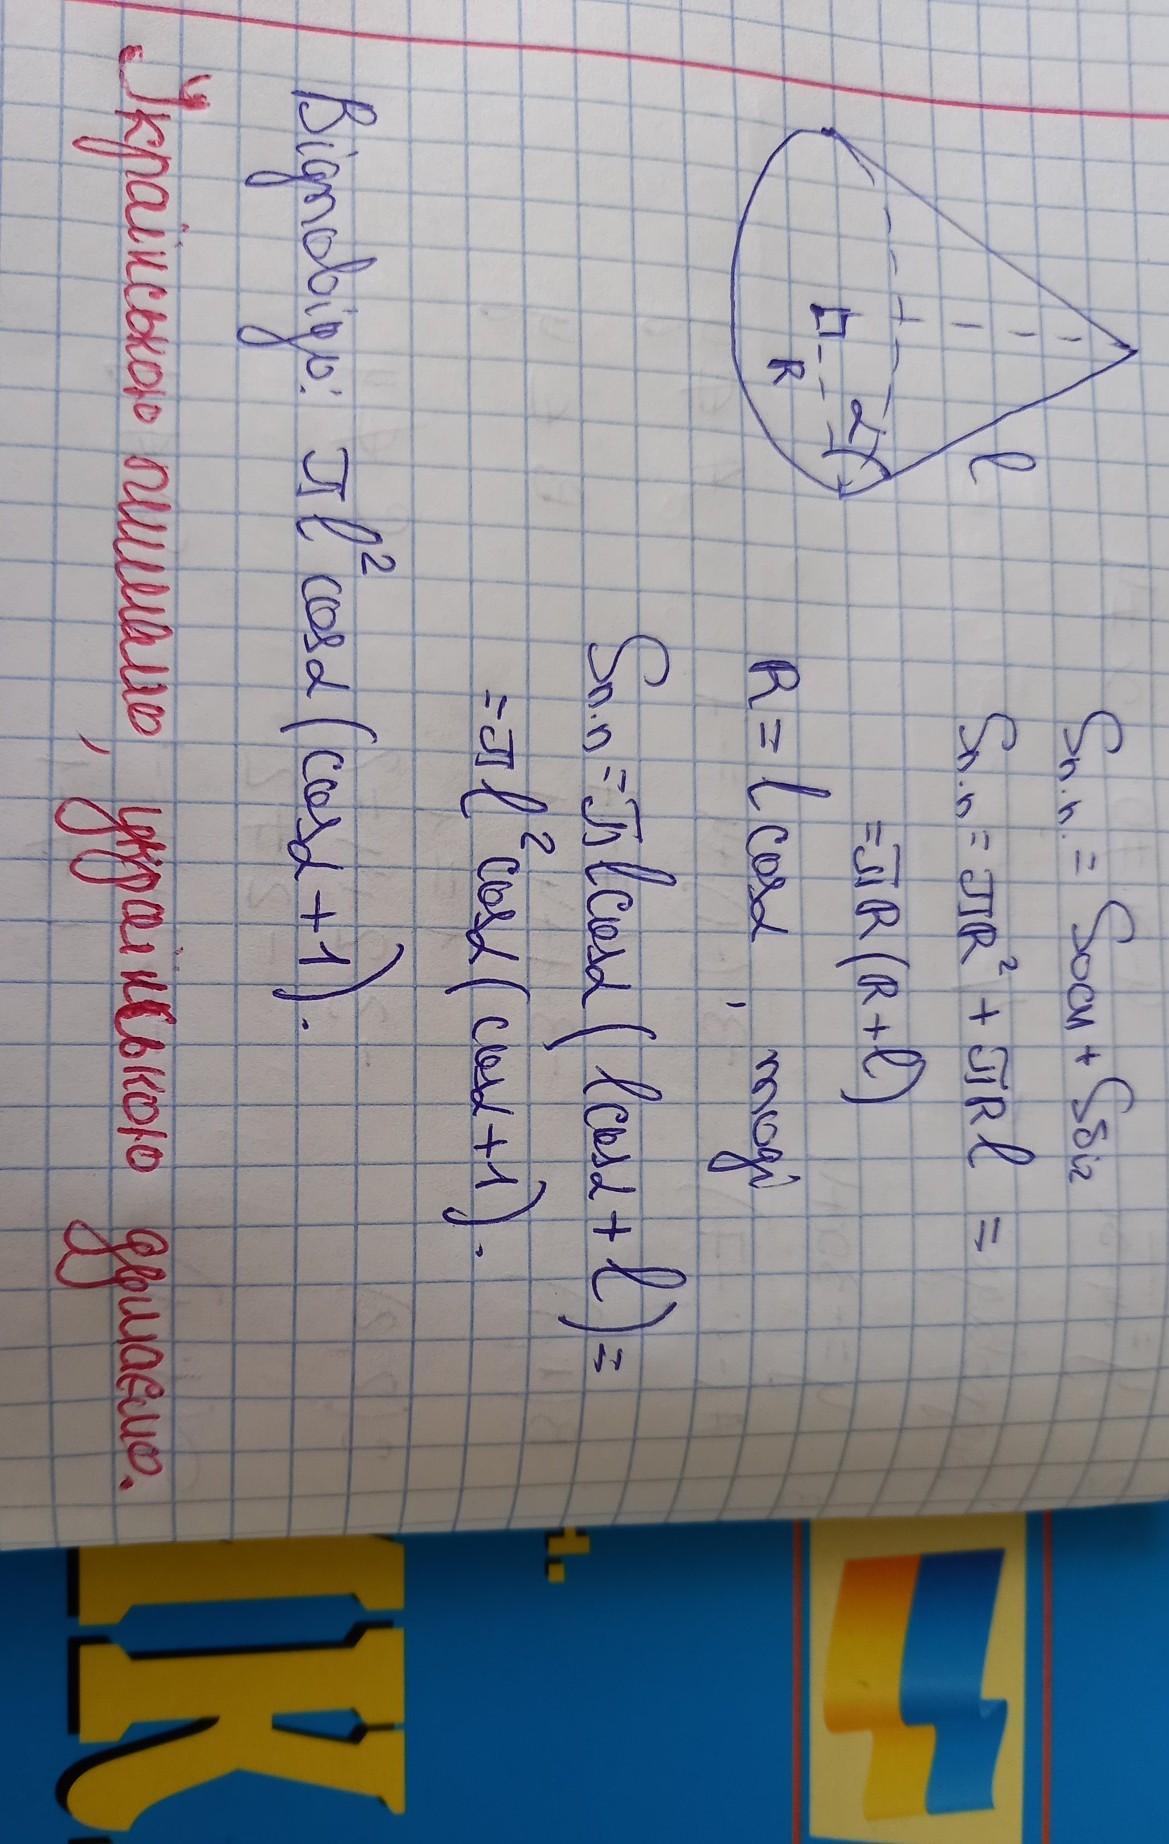 Sп.п. = Sосн + Sбіг
Sп.п = πR² + πRl =
= πR(R+l)
l
α
R
R = l cosα, тоді
Sп.п = πl cosα (l cosα + l) =
= πl² cosα (cosα + 1).
Відповідь: πl² cosα (cosα + 1).
Українською пишемо, українською думаємо.
ІК